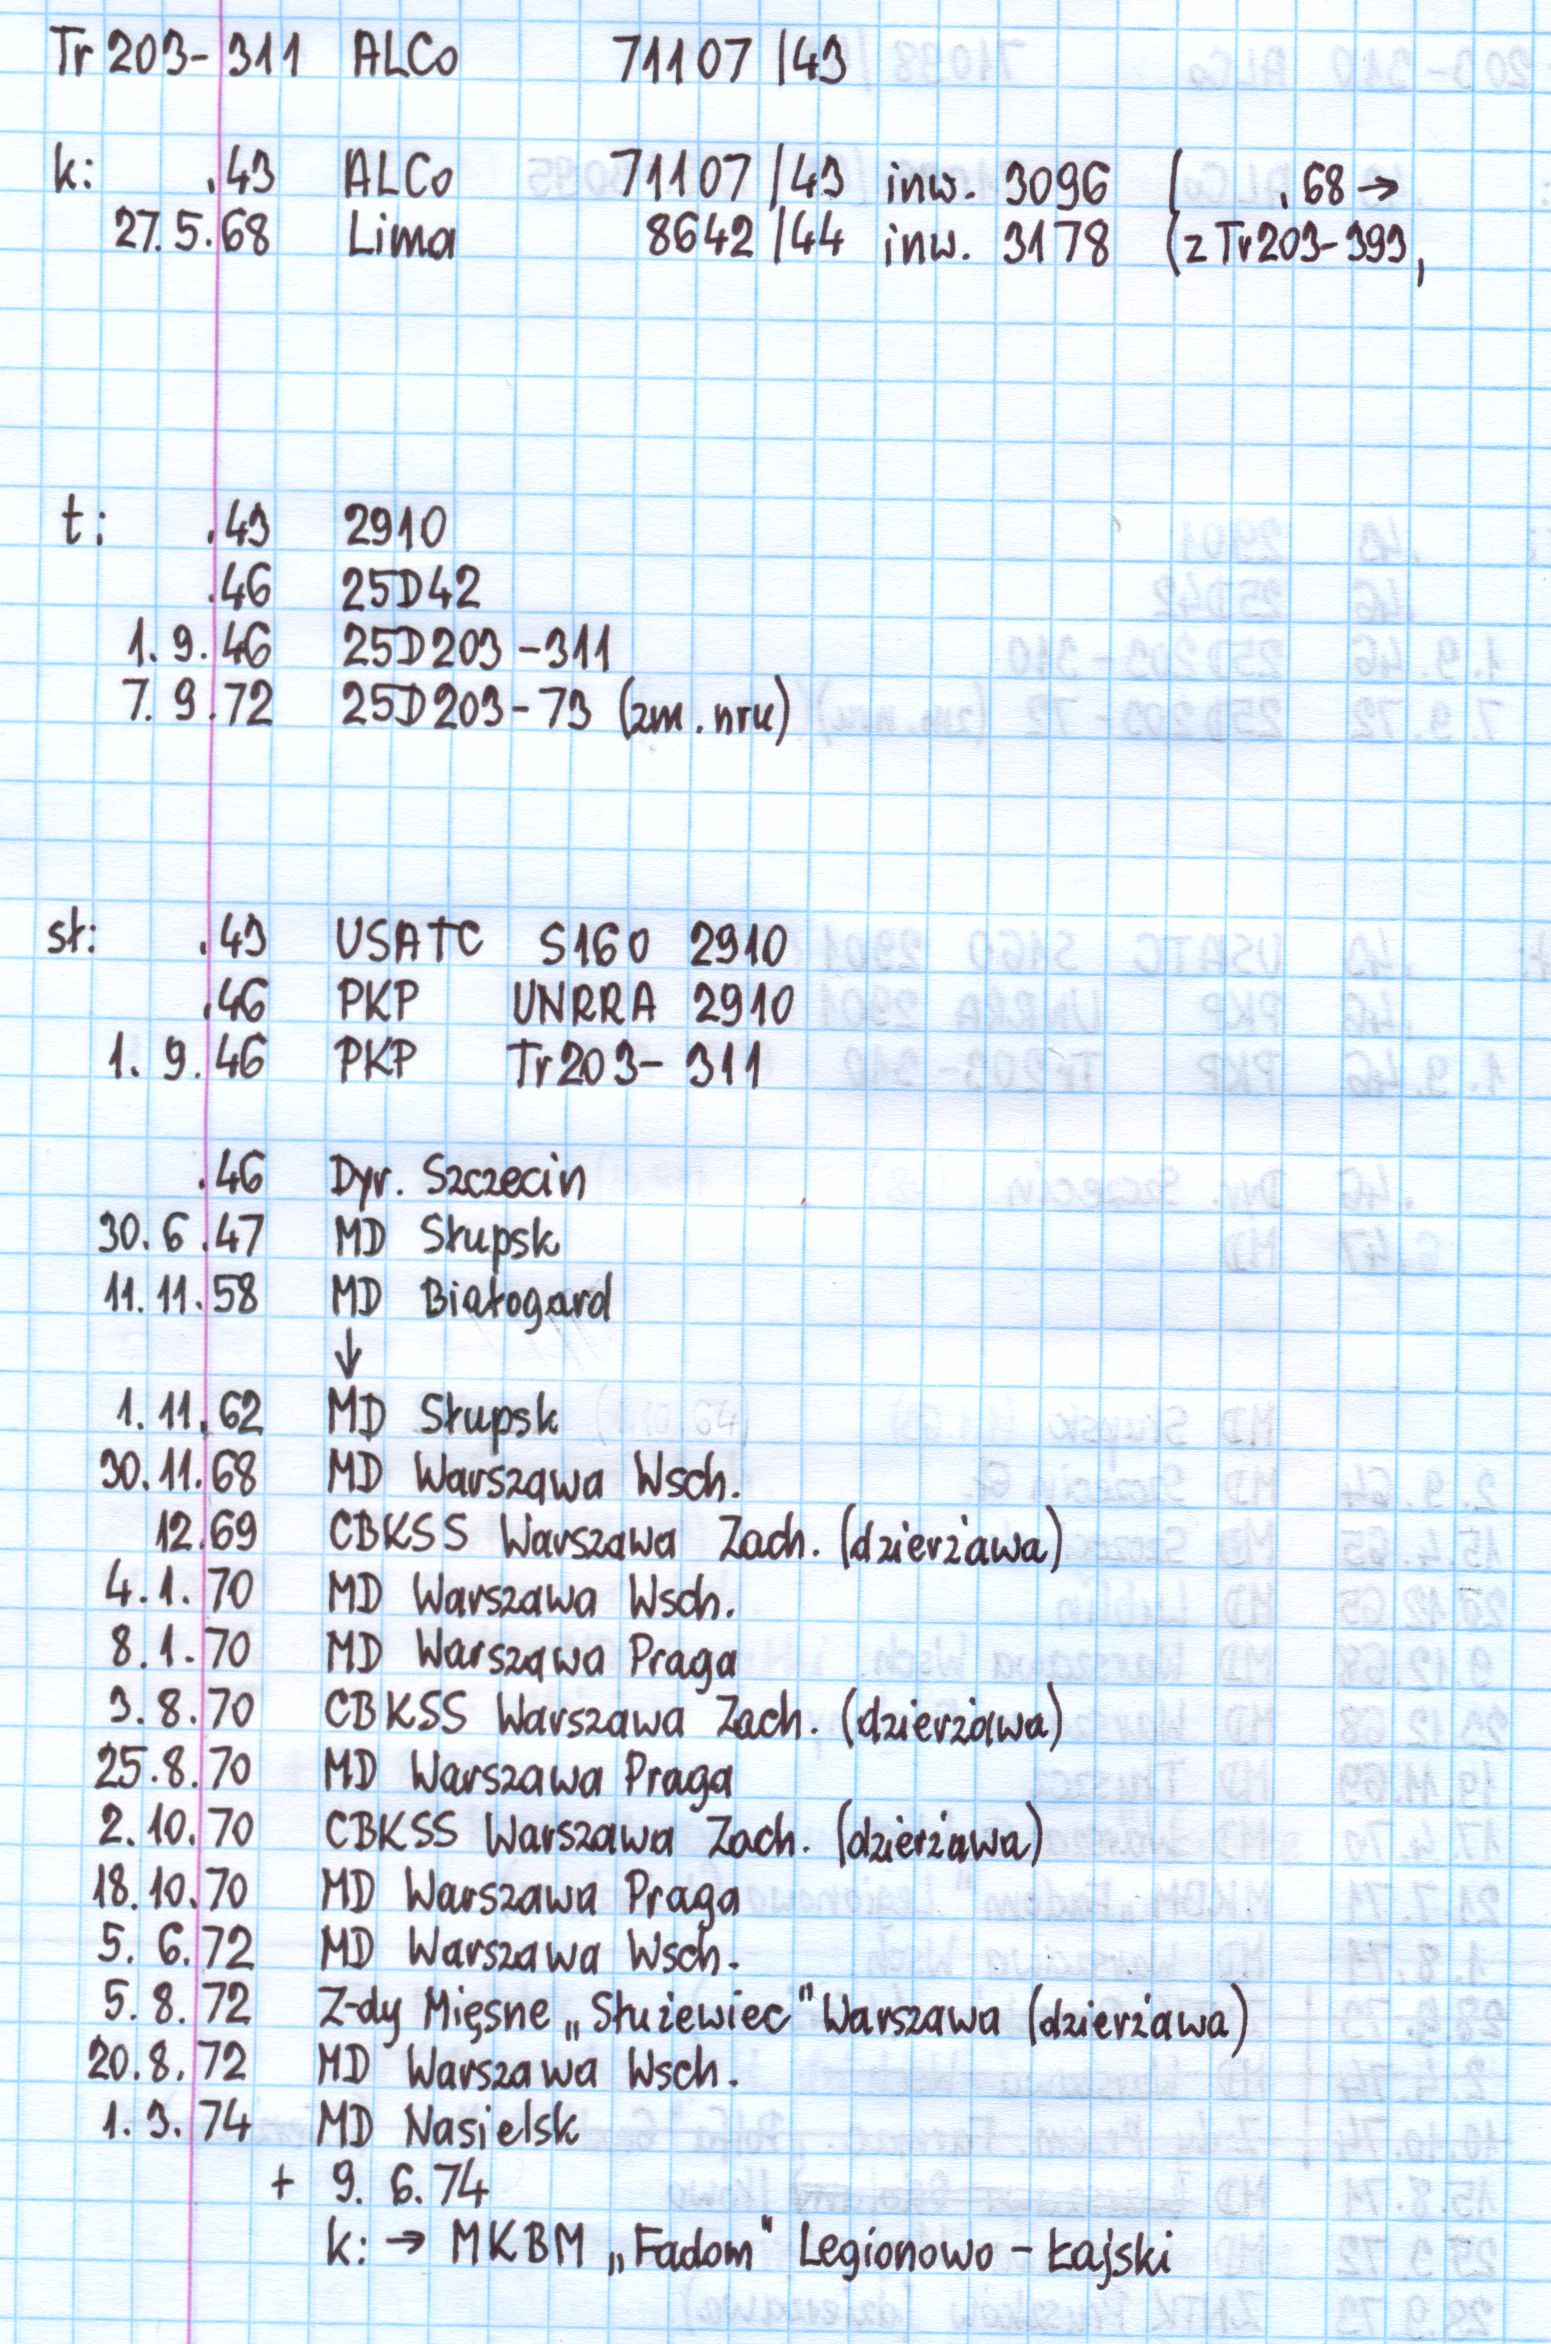 Tr203-311 ALCo 71107/43
k: .43 ALCo 71107/43 inw. 3096 ( .68→
27.5.68 Lima 8642/44 inw. 3178 (z Tr203-393,
t: .43 2910
.46 25D42
1.9.46 25D203-311
7.9.72 25D203-73 (zm. nru)
sł: .43 USATC S160 2910
.46 PKP UNRRA 2910
1.9.46 PKP Tr203-311
.46 Dyr. Szczecin
30.6.47 MD Słupsk
11.11.58 MD Białogard
↓
1.11.62 MD Słupsk
30.11.68 MD Warszawa Wsch.
12.69 CBKSS Warszawa Zach. (dzierżawa)
4.1.70 MD Warszawa Wsch.
8.1.70 MD Warszawa Praga
3.8.70 CBKSS Warszawa Zach. (dzierżawa)
25.8.70 MD Warszawa Praga
2.10.70 CBKSS Warszawa Zach. (dzierżawa)
18.10.70 MD Warszawa Praga
5.6.72 MD Warszawa Wsch.
5.8.72 Z-dy Mięsne „Służewiec" Warszawa (dzierżawa)
20.8.72 MD Warszawa Wsch.
1.3.74 MD Nasielsk
+ 9.6.74
k: → MKBM „Fadom" Legionowo - Łajski